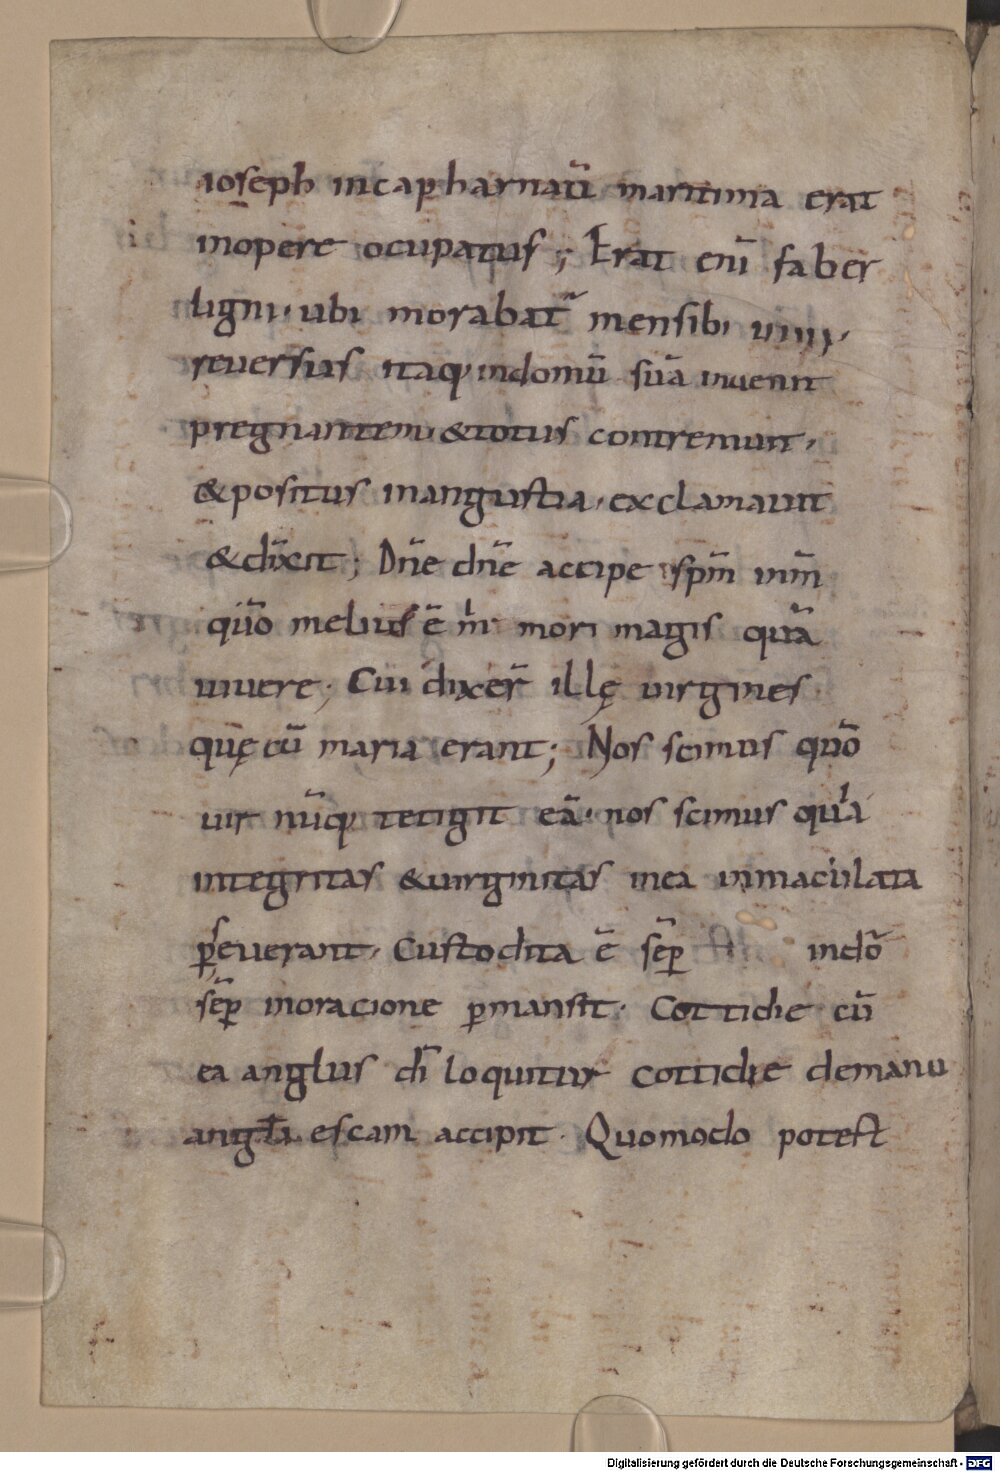 ioseph incapharnaū maritima erat
inopere ocupatus; Erat enī faber
ligni· ubi morabat̄ mensib; uiiii·
reuersus itaq; indomū sūa inuenit
pregnantem· &totus contremuit·
&positus inangustia· exclamauit
&dīxit; Dn̄e dn̄e accipe sp̄m m̄m
qūo melius ē m̄ mori magis quā
uiuere; Cui dixer̄ illę uirgines
quę cū maria erant; Nos scimus qūo
uir nūq; tetigit eā· nos scimus quia
integritas &uirginitas inea inmaculata
p̄seuerauit· Custodita ē sēp indō
sēp inoracione permansit· Cottidie cū
ea anglus dī loquitur cottidie demanu
angl̄i escam accipit· Quomodo potest
Digitalisierung gefördert durch die Deutsche Forschungsgemeinschaft - DFG